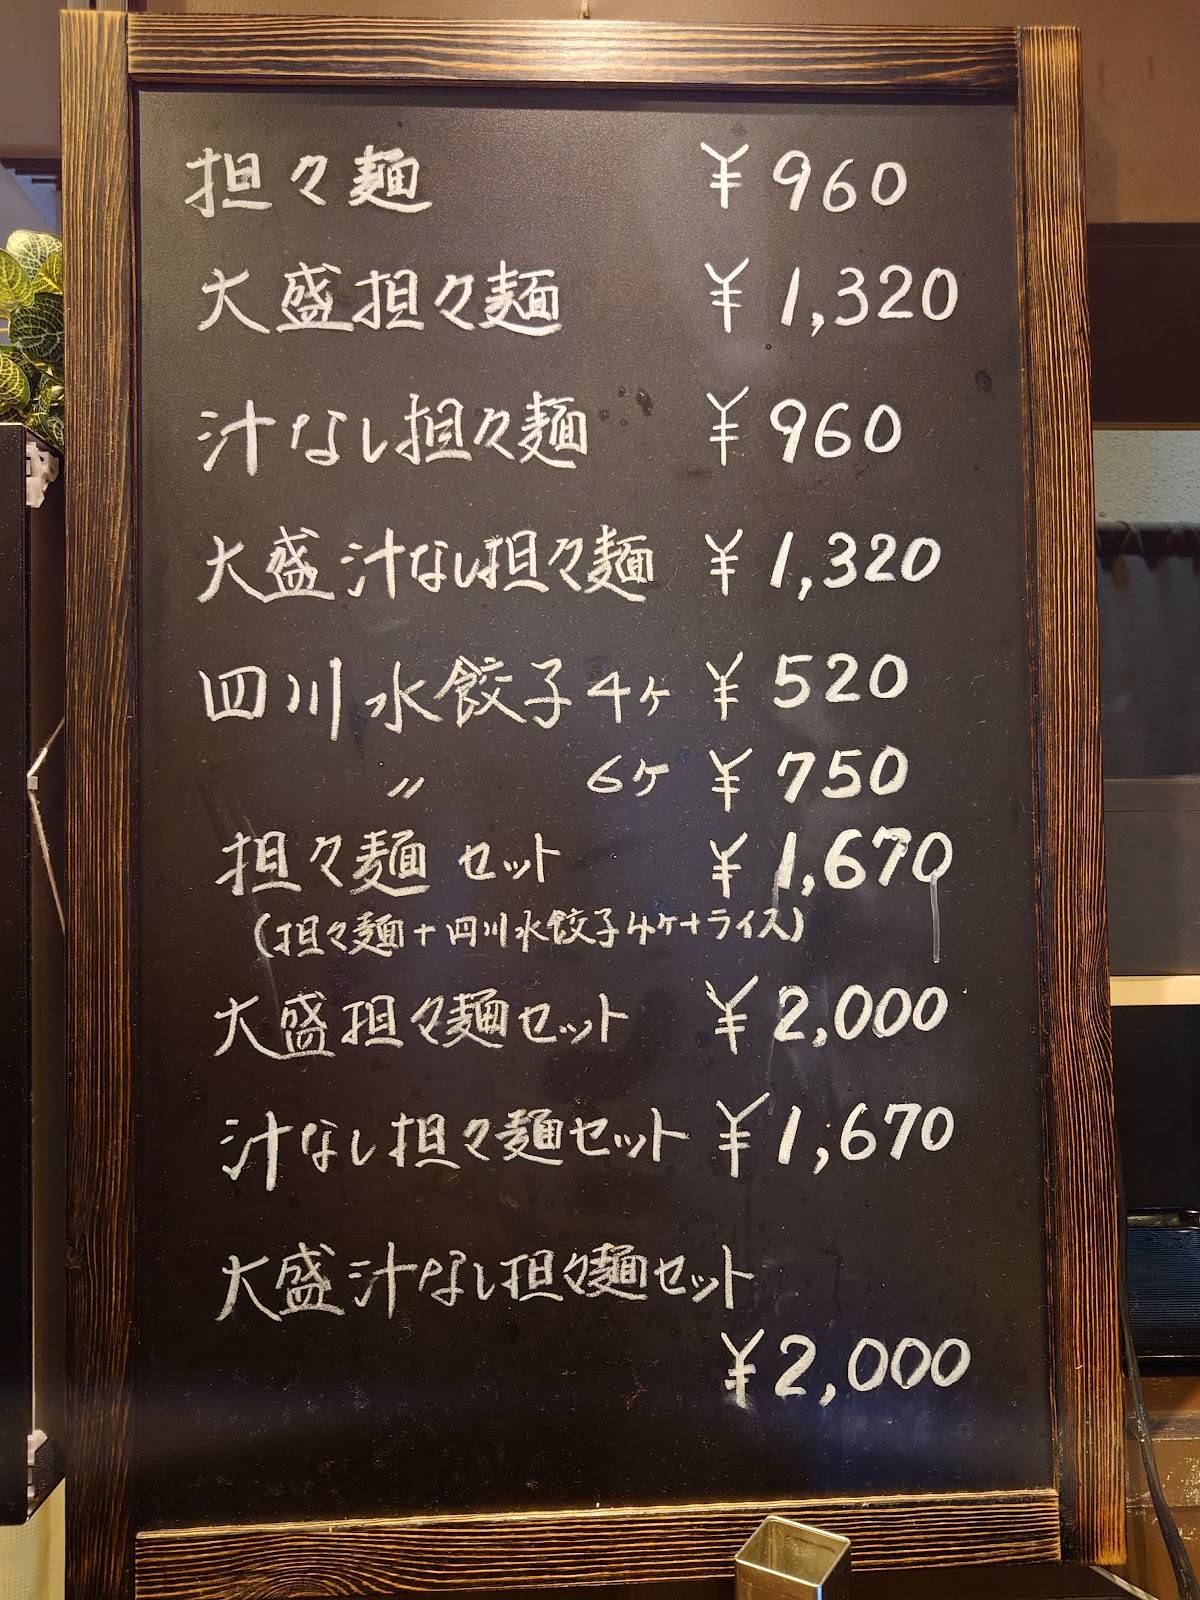 担々麺 ¥960
大盛担々麺 ¥1,320
汁なし担々麺 ¥960
大盛汁なし担々麺 ¥1,320
四川水餃子4ヶ ¥520
〃 6ヶ ¥750
担々麺セット ¥1,670
(担々麺+四川水餃子4ヶ+ライス)
大盛担々麺セット ¥2,000
汁なし担々麺セット ¥1,670
大盛汁なし担々麺セット
¥2,000